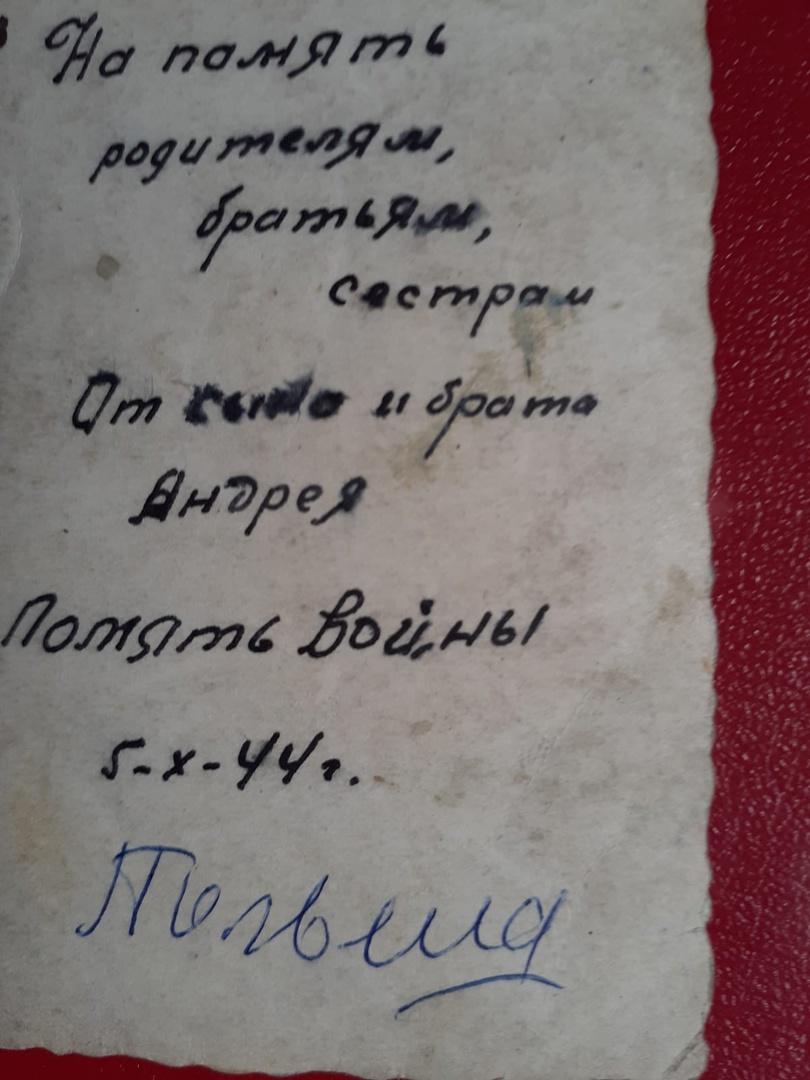 На память
родителям,
братьям,
сестрам
От сына и брата
Андрея
Помять войны
5-х-44г.
Польша